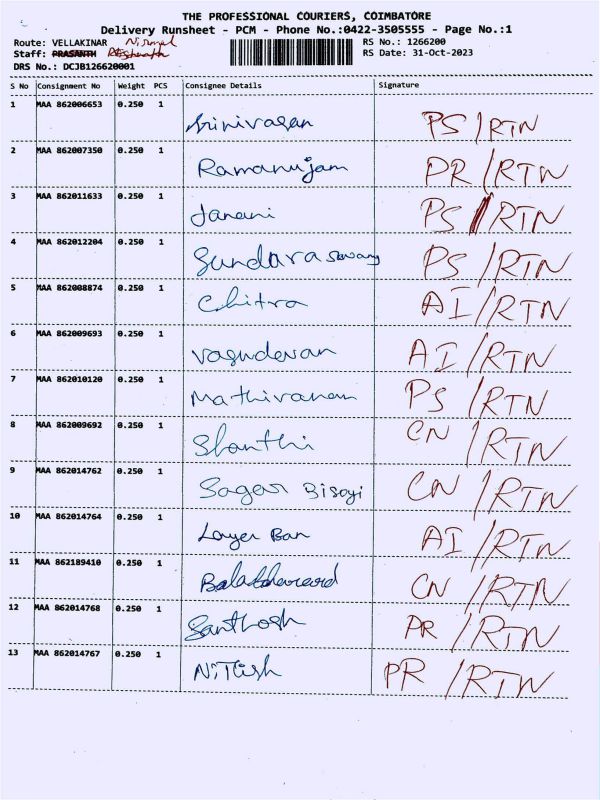 THE PROFESSIONAL COURIERS, COIMBATORE
Delivery Runsheet - PCM - Phone No.:0422-3505555 - Page No.:1
Route: VELLAKINAR Nirmal RS No.: 1266200
Staff: PRASANTH RS Date: 31-Oct-2023
DRS No.: DCJB126620001
S No Consignment No Weight PCS Consignee Details Signature
1 MAA 862006653 0.250 1 Srinivasan PS/RTN
2 MAA 862007350 0.250 1 Ramanujam PR/RTN
3 MAA 862011633 0.250 1 Janani PS/RTN
4 MAA 862012204 0.250 1 PS/RTN
5 MAA 862008874 0.250 1 Chitra AI/RTN
6 MAA 862009693 0.250 1 Vasudevan AI/RTN
7 MAA 862010120 0.250 1 Mathivanan PS/RTN
8 MAA 862009692 0.250 1 Shanthi CN/RTN
9 MAA 862014762 0.250 1 Sagar Bisoyi CN/RTN
10 MAA 862014764 0.250 1 AI/RTN
11 MAA 862189410 0.250 1 CN/RTN
12 MAA 862014768 0.250 1 Santhosh PR/RTN
13 MAA 862014767 0.250 1 Nitish PR/RTN